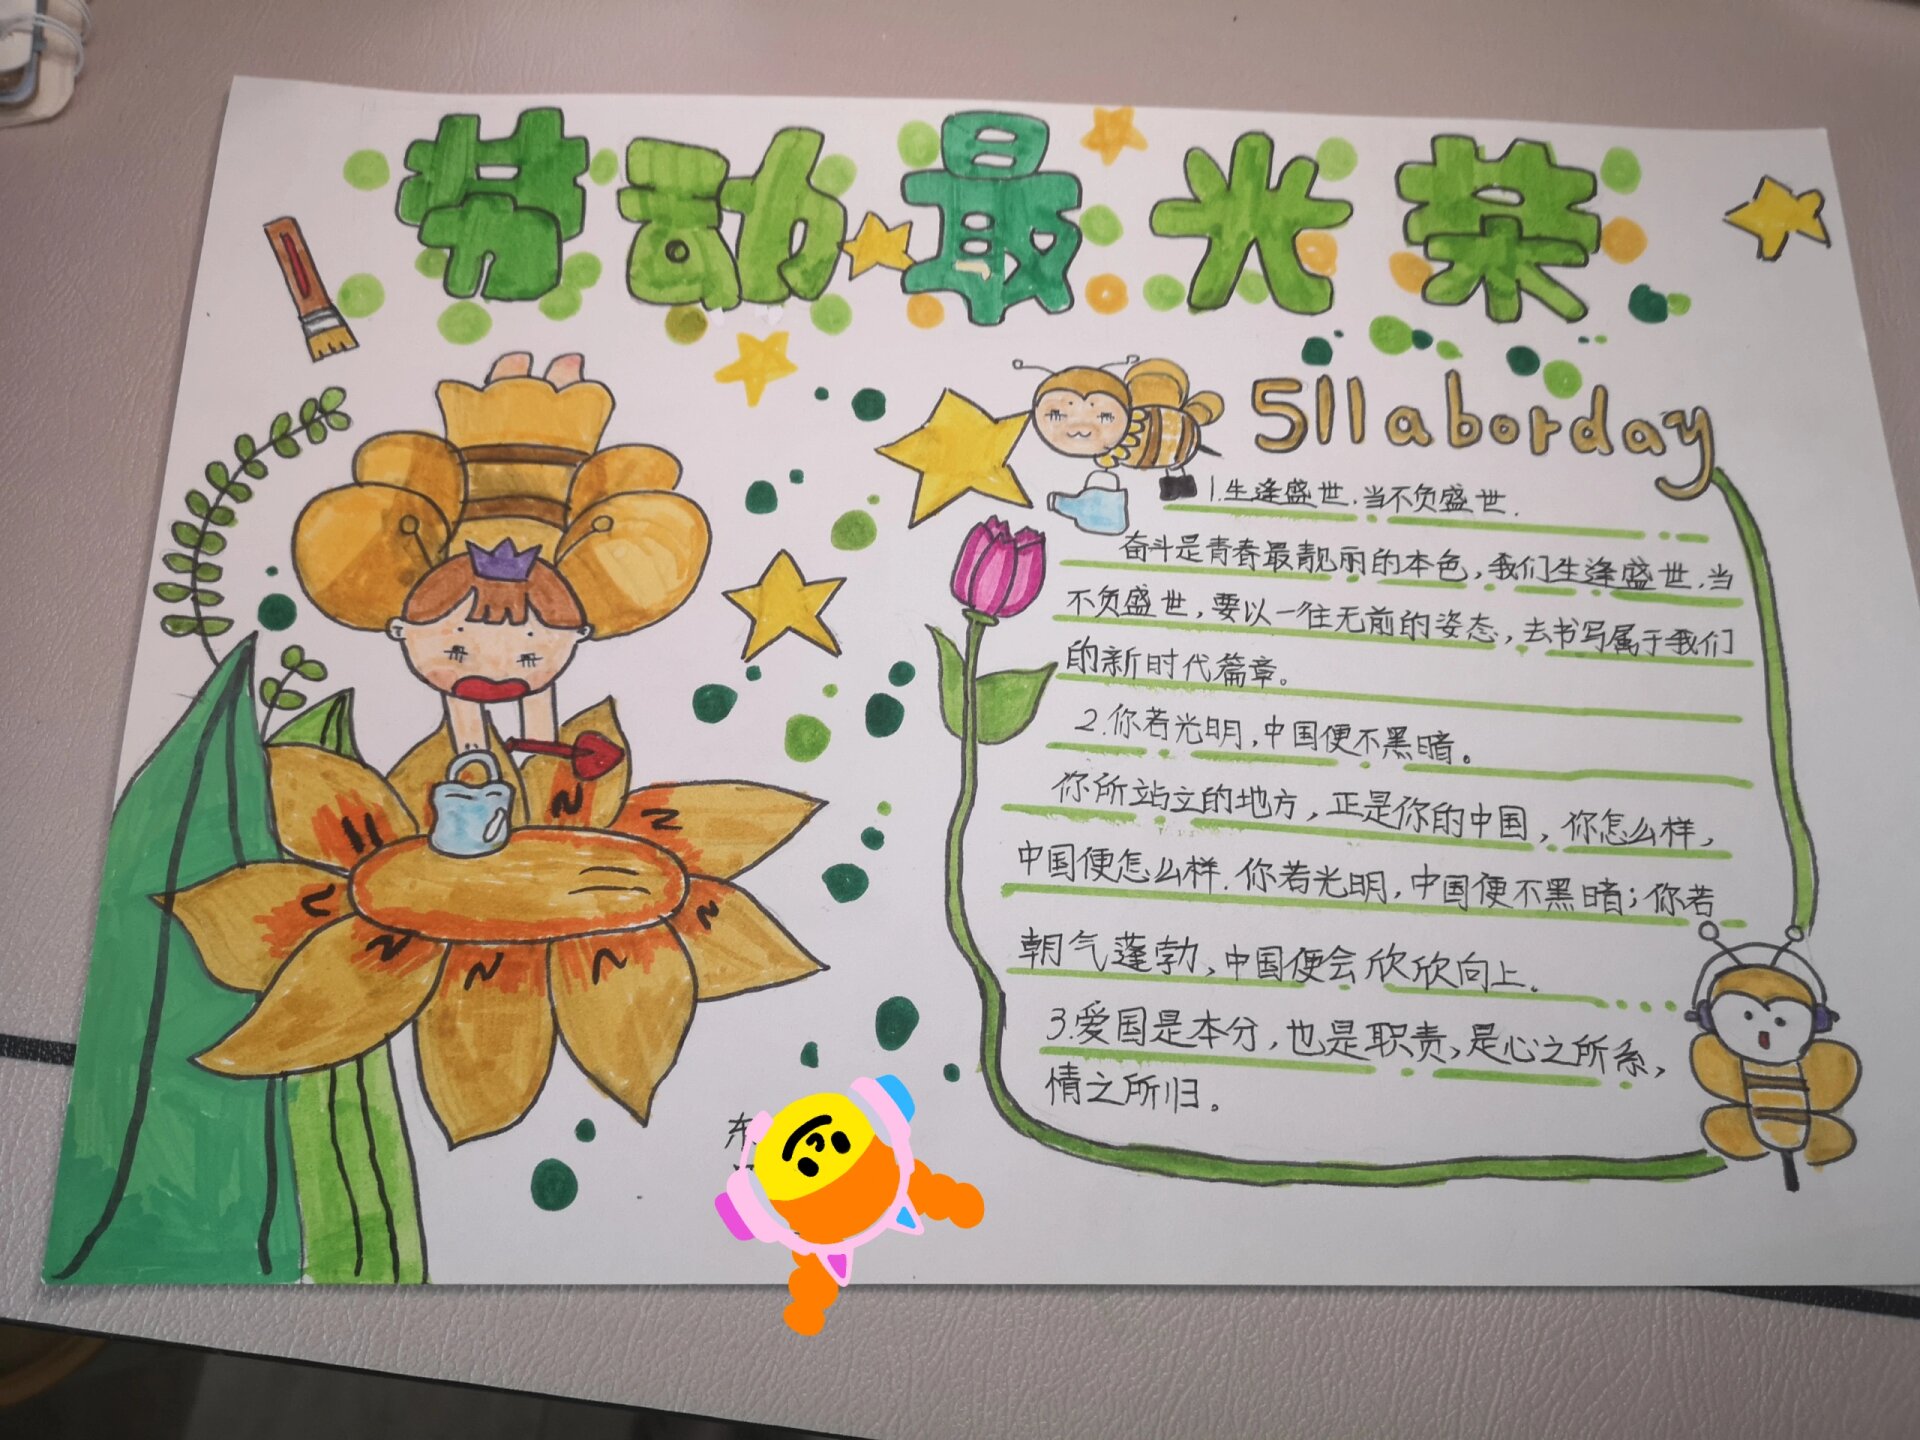 劳动最光荣
511aborday
1.生逢盛世.当不负盛世.
奋斗是青春最靓丽的本色,我们生逢盛世.当
不负盛世,要以一往无前的姿态,去书写属于我们
的新时代篇章。
2.你若光明,中国便不黑暗。
你所站立的地方,正是你的中国,你怎么样,
中国便怎么样.你若光明,中国便不黑暗;你若
朝气蓬勃,中国便会欣欣向上.
3.爱国是本分,也是职责,是心之所系,
情之所归。
东